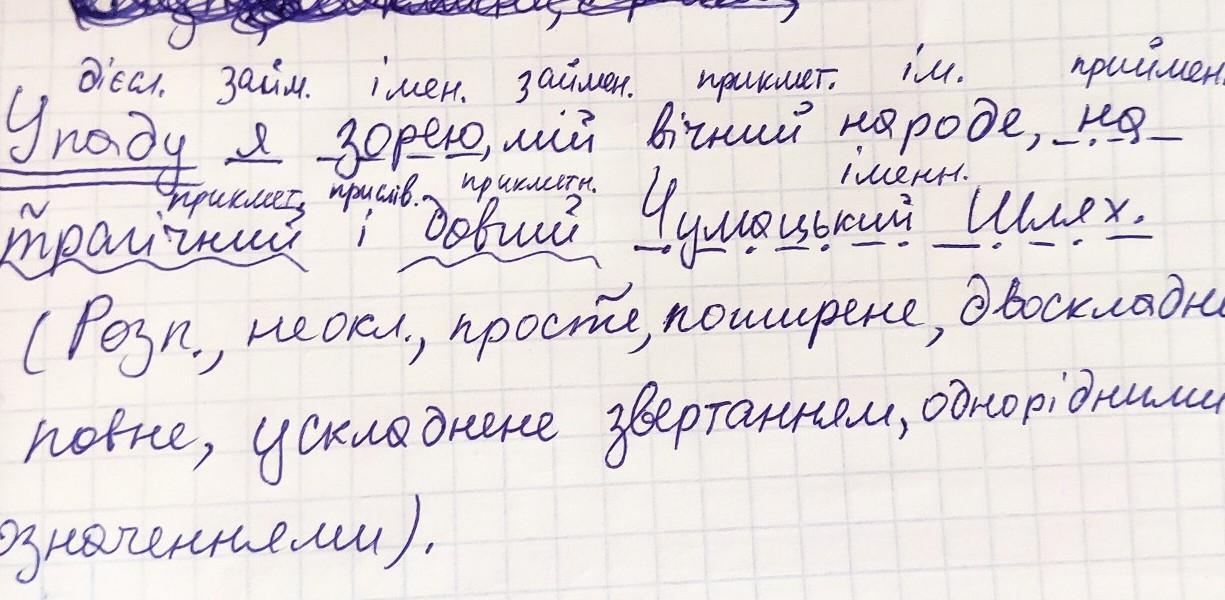 дієсл. займ. імен. займен. прикмет. ім. приймен.
Упаду я зорею, мій вічний народе, на
прикмет. прислів. прикметн. іменн.
трагічний і довгий Чумацький Шлях.
(Розп., неокл., просте, поширене, двоскладне
повне, ускладнене звертанням, однорідними
означеннями).